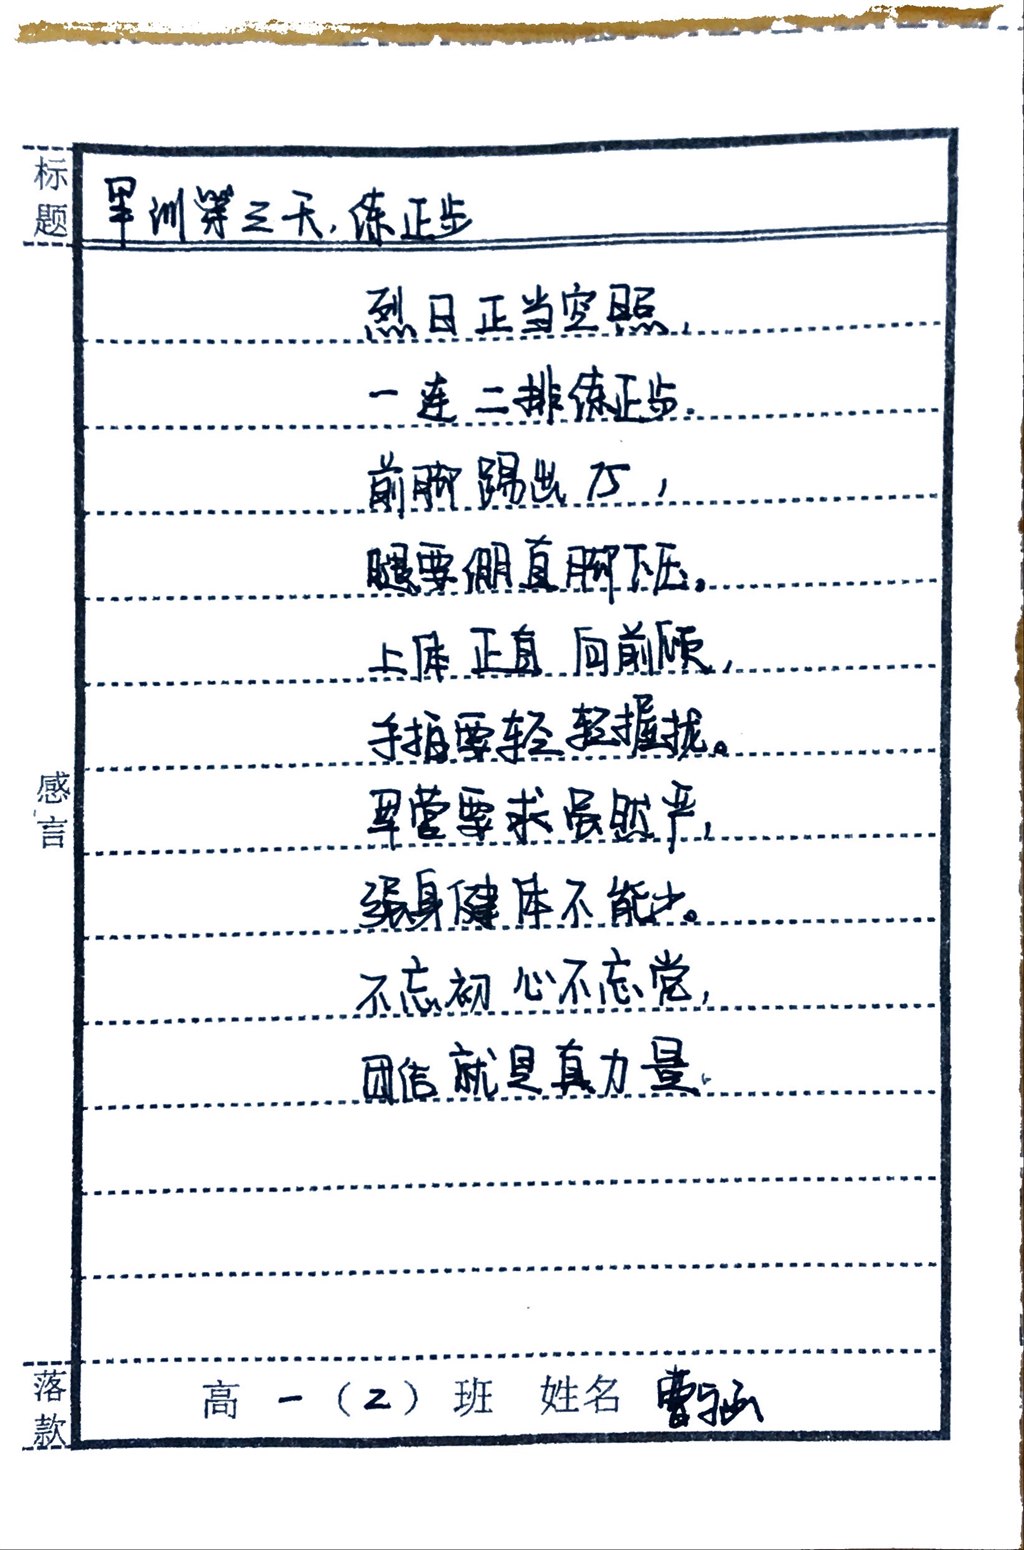 标题
军训第三天,练正步
烈日正当空照,
一连二排练正步.
前脚踢出75,
腿要绷直脚下压。
上体正直向前顾,
手指要轻轻握拢。
军营要求虽然严,
强身健体不能少。
不忘初心不忘党,
团结就是真力量.
感言
落款
高一(2)班 姓名 曹涵